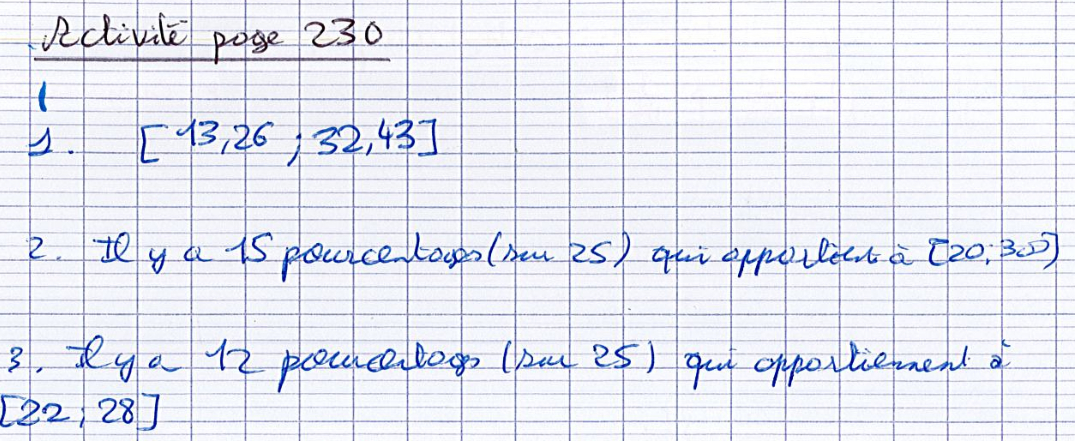 Activité page 230
1
1. [13,26 ; 32,43]
2. Il y a 15 pourcentages (sur 25) qui appartient à [20;30]
3. Il y a 12 pourcentages (sur 25) qui appartiennent à
[22 ; 28]